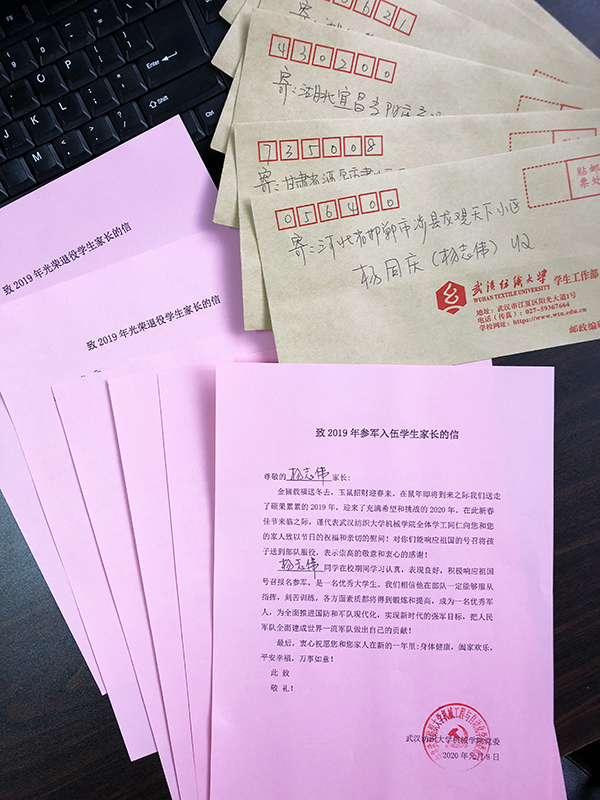 0621
430200
寄:湖北宜昌
735008
寄:甘肃
056400
寄:河北省邯郸市涉县龙观天下小区
杨同庆(杨志伟)收
贴邮
票处
武汉纺织大学 学生工作部
WUHAN TEXTILE UNIVERSITY
地址:武汉市江夏区阳光大道1号
电话(传真):027-59367664
学校网址:https://www.wtu.edu.cn
邮政编
Enter
Shift
致 2019 年光荣退役学生家长的信
致 2019 年光荣退役学生家长的信
致 2019 年参军入伍学生家长的信
尊敬的杨志伟家长:
金猪载福送冬去,玉鼠招财迎春来。在鼠年即将到来之际我们送走
了硕果累累的 2019 年,迎来了充满希望和挑战的 2020 年。在此新春
佳节来临之际,谨代表武汉纺织大学机械学院全体学工同仁向您和您
的家人致以节日的祝福和亲切的慰问!对你们能响应祖国的号召将孩
子送到部队服役,表示崇高的敬意和衷心的感谢!
杨志伟同学在校期间学习认真,表现良好,积极响应祖国
号召报名参军,是一名优秀大学生。我们相信他在部队一定能够服从
指挥,刻苦训练,各方面素质都将得到锻炼和提高,成为一名优秀军
人,为全面推进国防和军队现代化,实现新时代的强军目标,把人民
军队全面建成世界一流军队做出自己的贡献!
最后,衷心祝愿您和您家人在新的一年里:身体健康,阖家欢乐,
平安幸福,万事如意!
此 致
敬 礼!
武汉纺织大学机械学院党委
2020 年元月 8 日